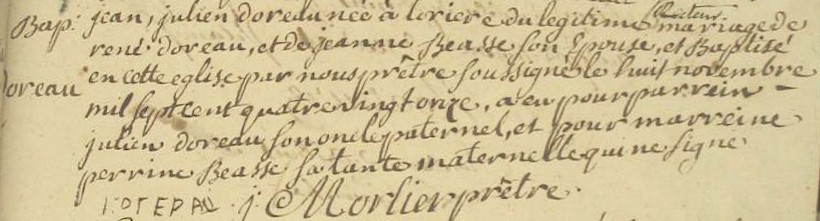 Bap: jean, julien doreau née à loriere du legitime mariage de
rené doreau, et de jeanne Beasse son Epouse, et Baptisé
doreau en cette eglise par nous prêtre soussigné le huit novembre
mil sept cent quatre vingt onze, a eu pour parrein
julien doreau son oncle paternel, et pour marreine
perrine Beasse sa tante maternelle qui ne signe
j: Morlier prêtre.